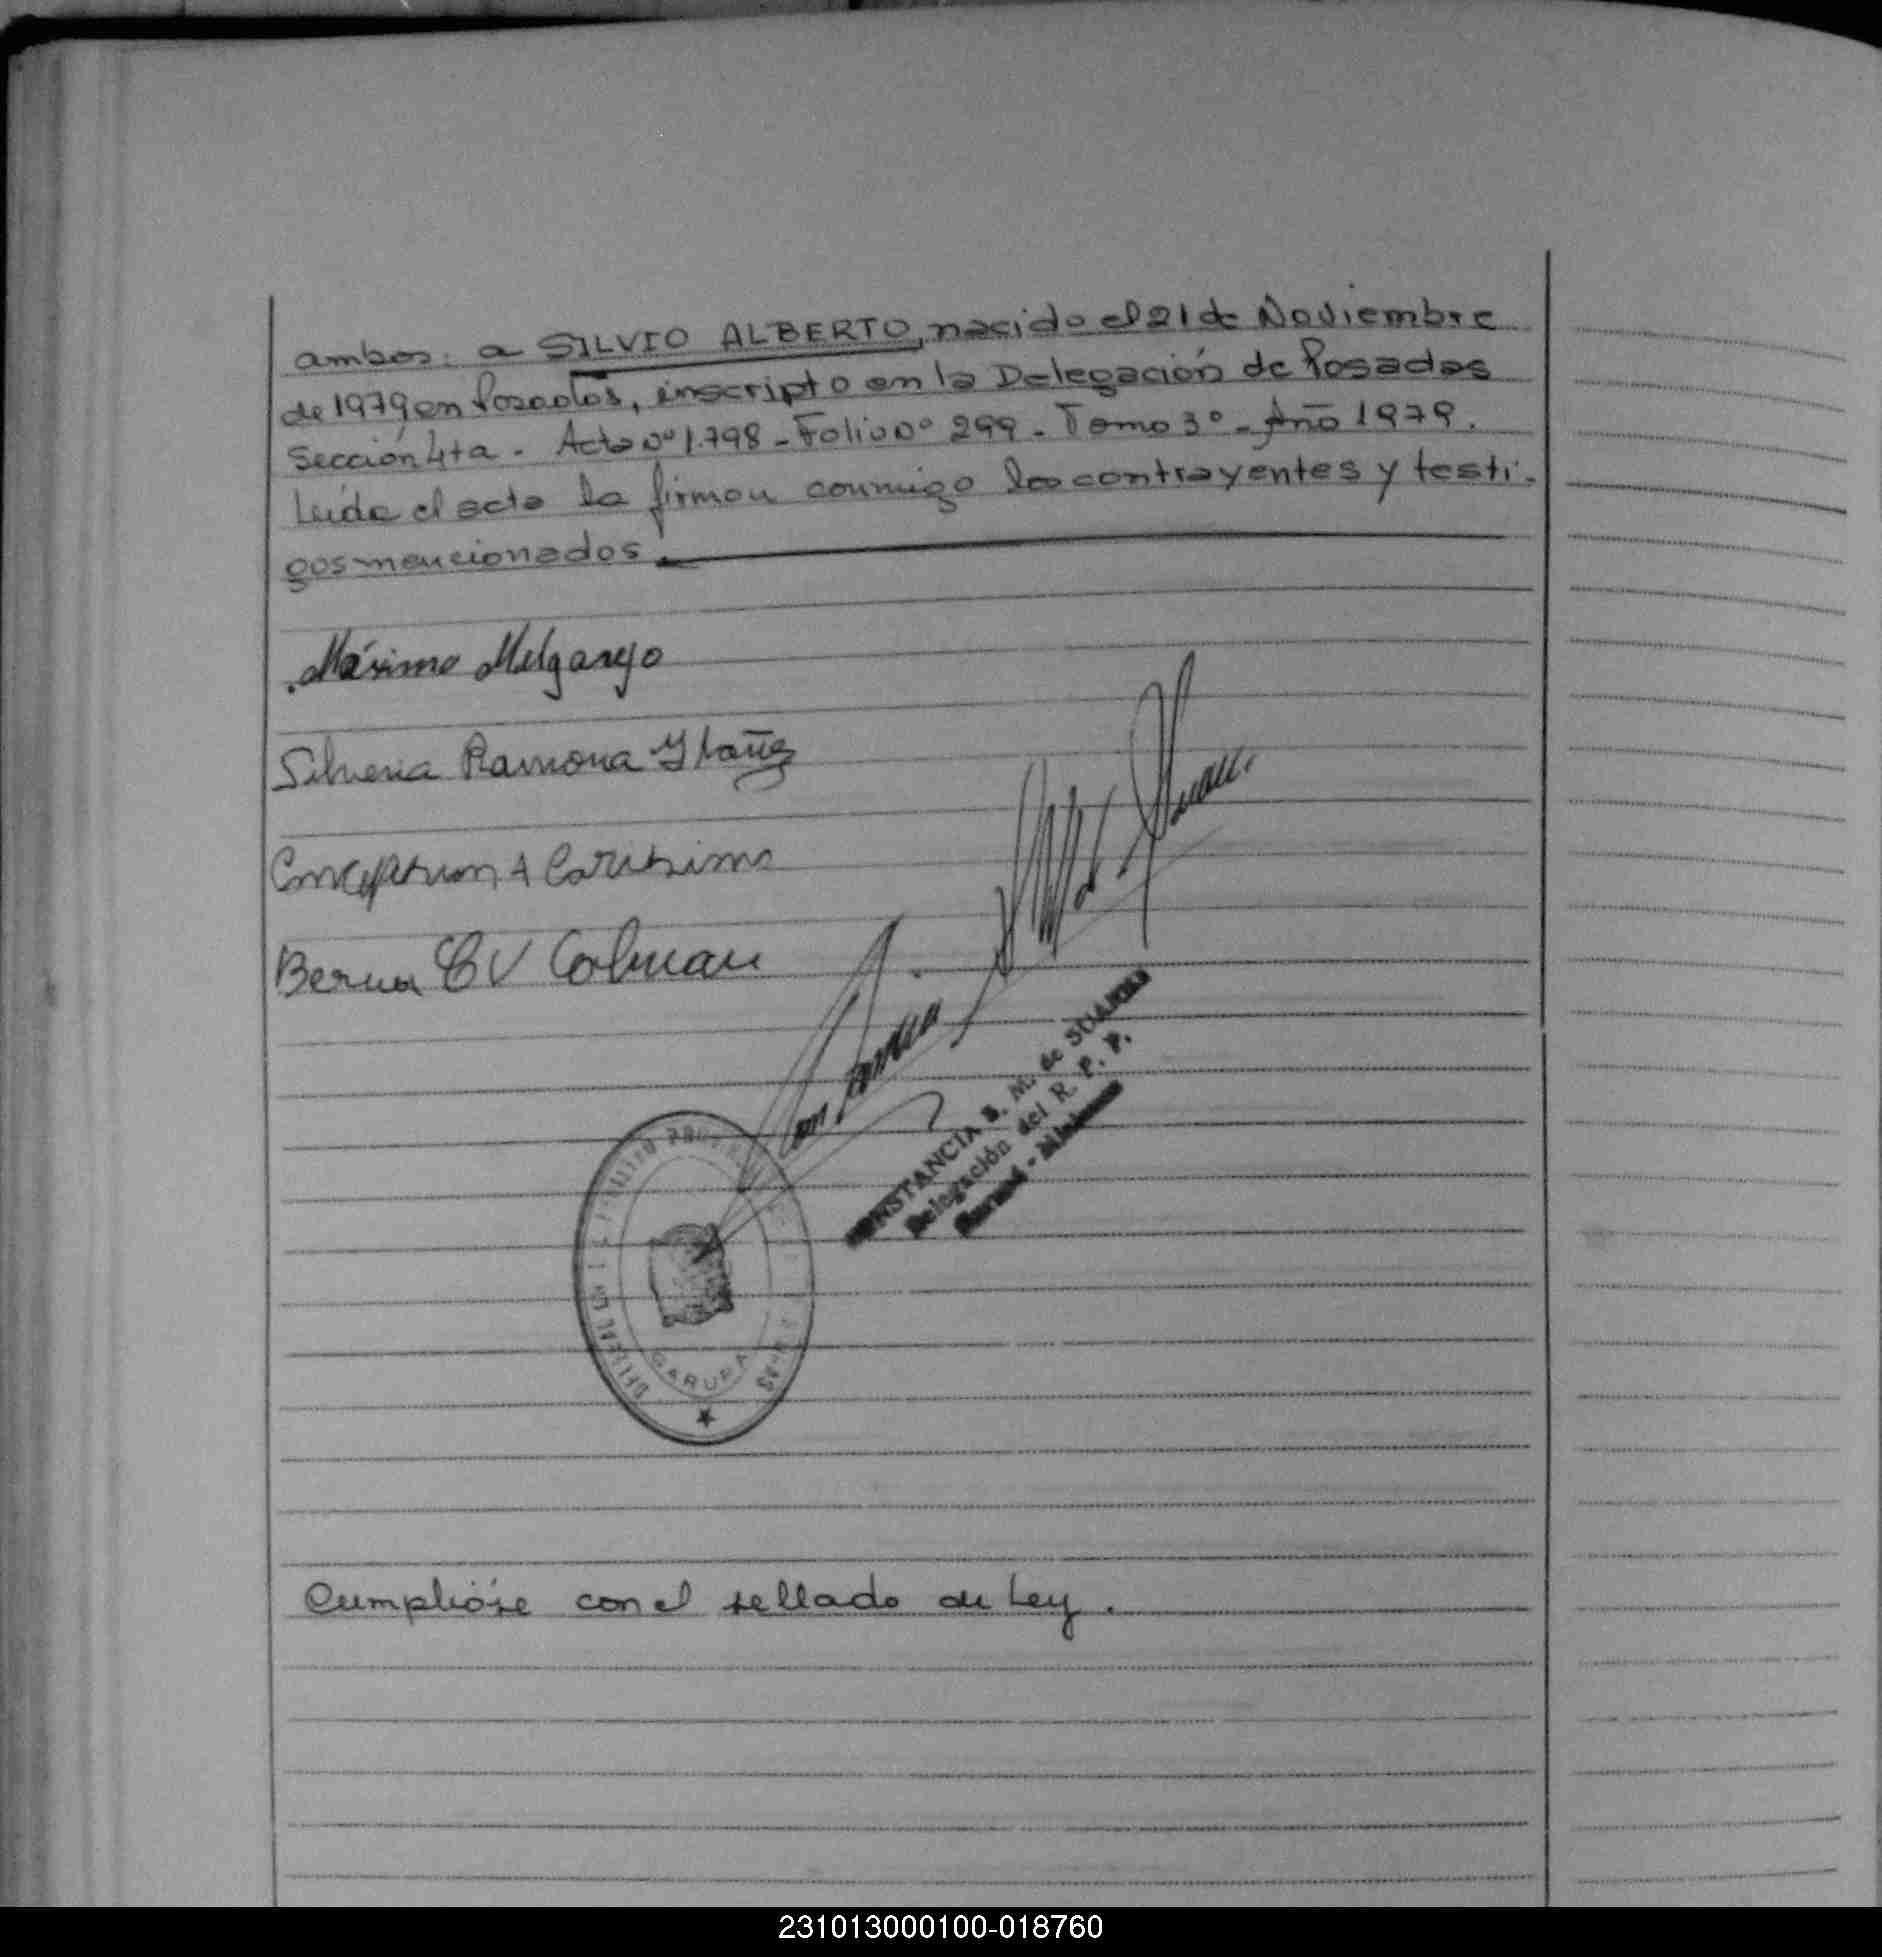 ambos: a SILVIO ALBERTO, nacido el 21 de Noviembre
de 1979 en Posadas, inscripto en la Delegación de Posadas
Sección 4ta. Acta nº 1.798 - Folio nº 299 - Tomo 3º - Año 1979.
Leída el acta la firman conmigo los contrayentes y testi-
gos mencionados.
Máximo Melgarejo
Silveria Ramona Ybañez
Concepcion A Carissimo
Berna CV Colman
CONSTANCIA B. M. de SUAREZ
Delegación del R. P. P.
Garupá - Misiones
GARUPA
Cumplióse con el sellado de Ley.
231013000100-018760